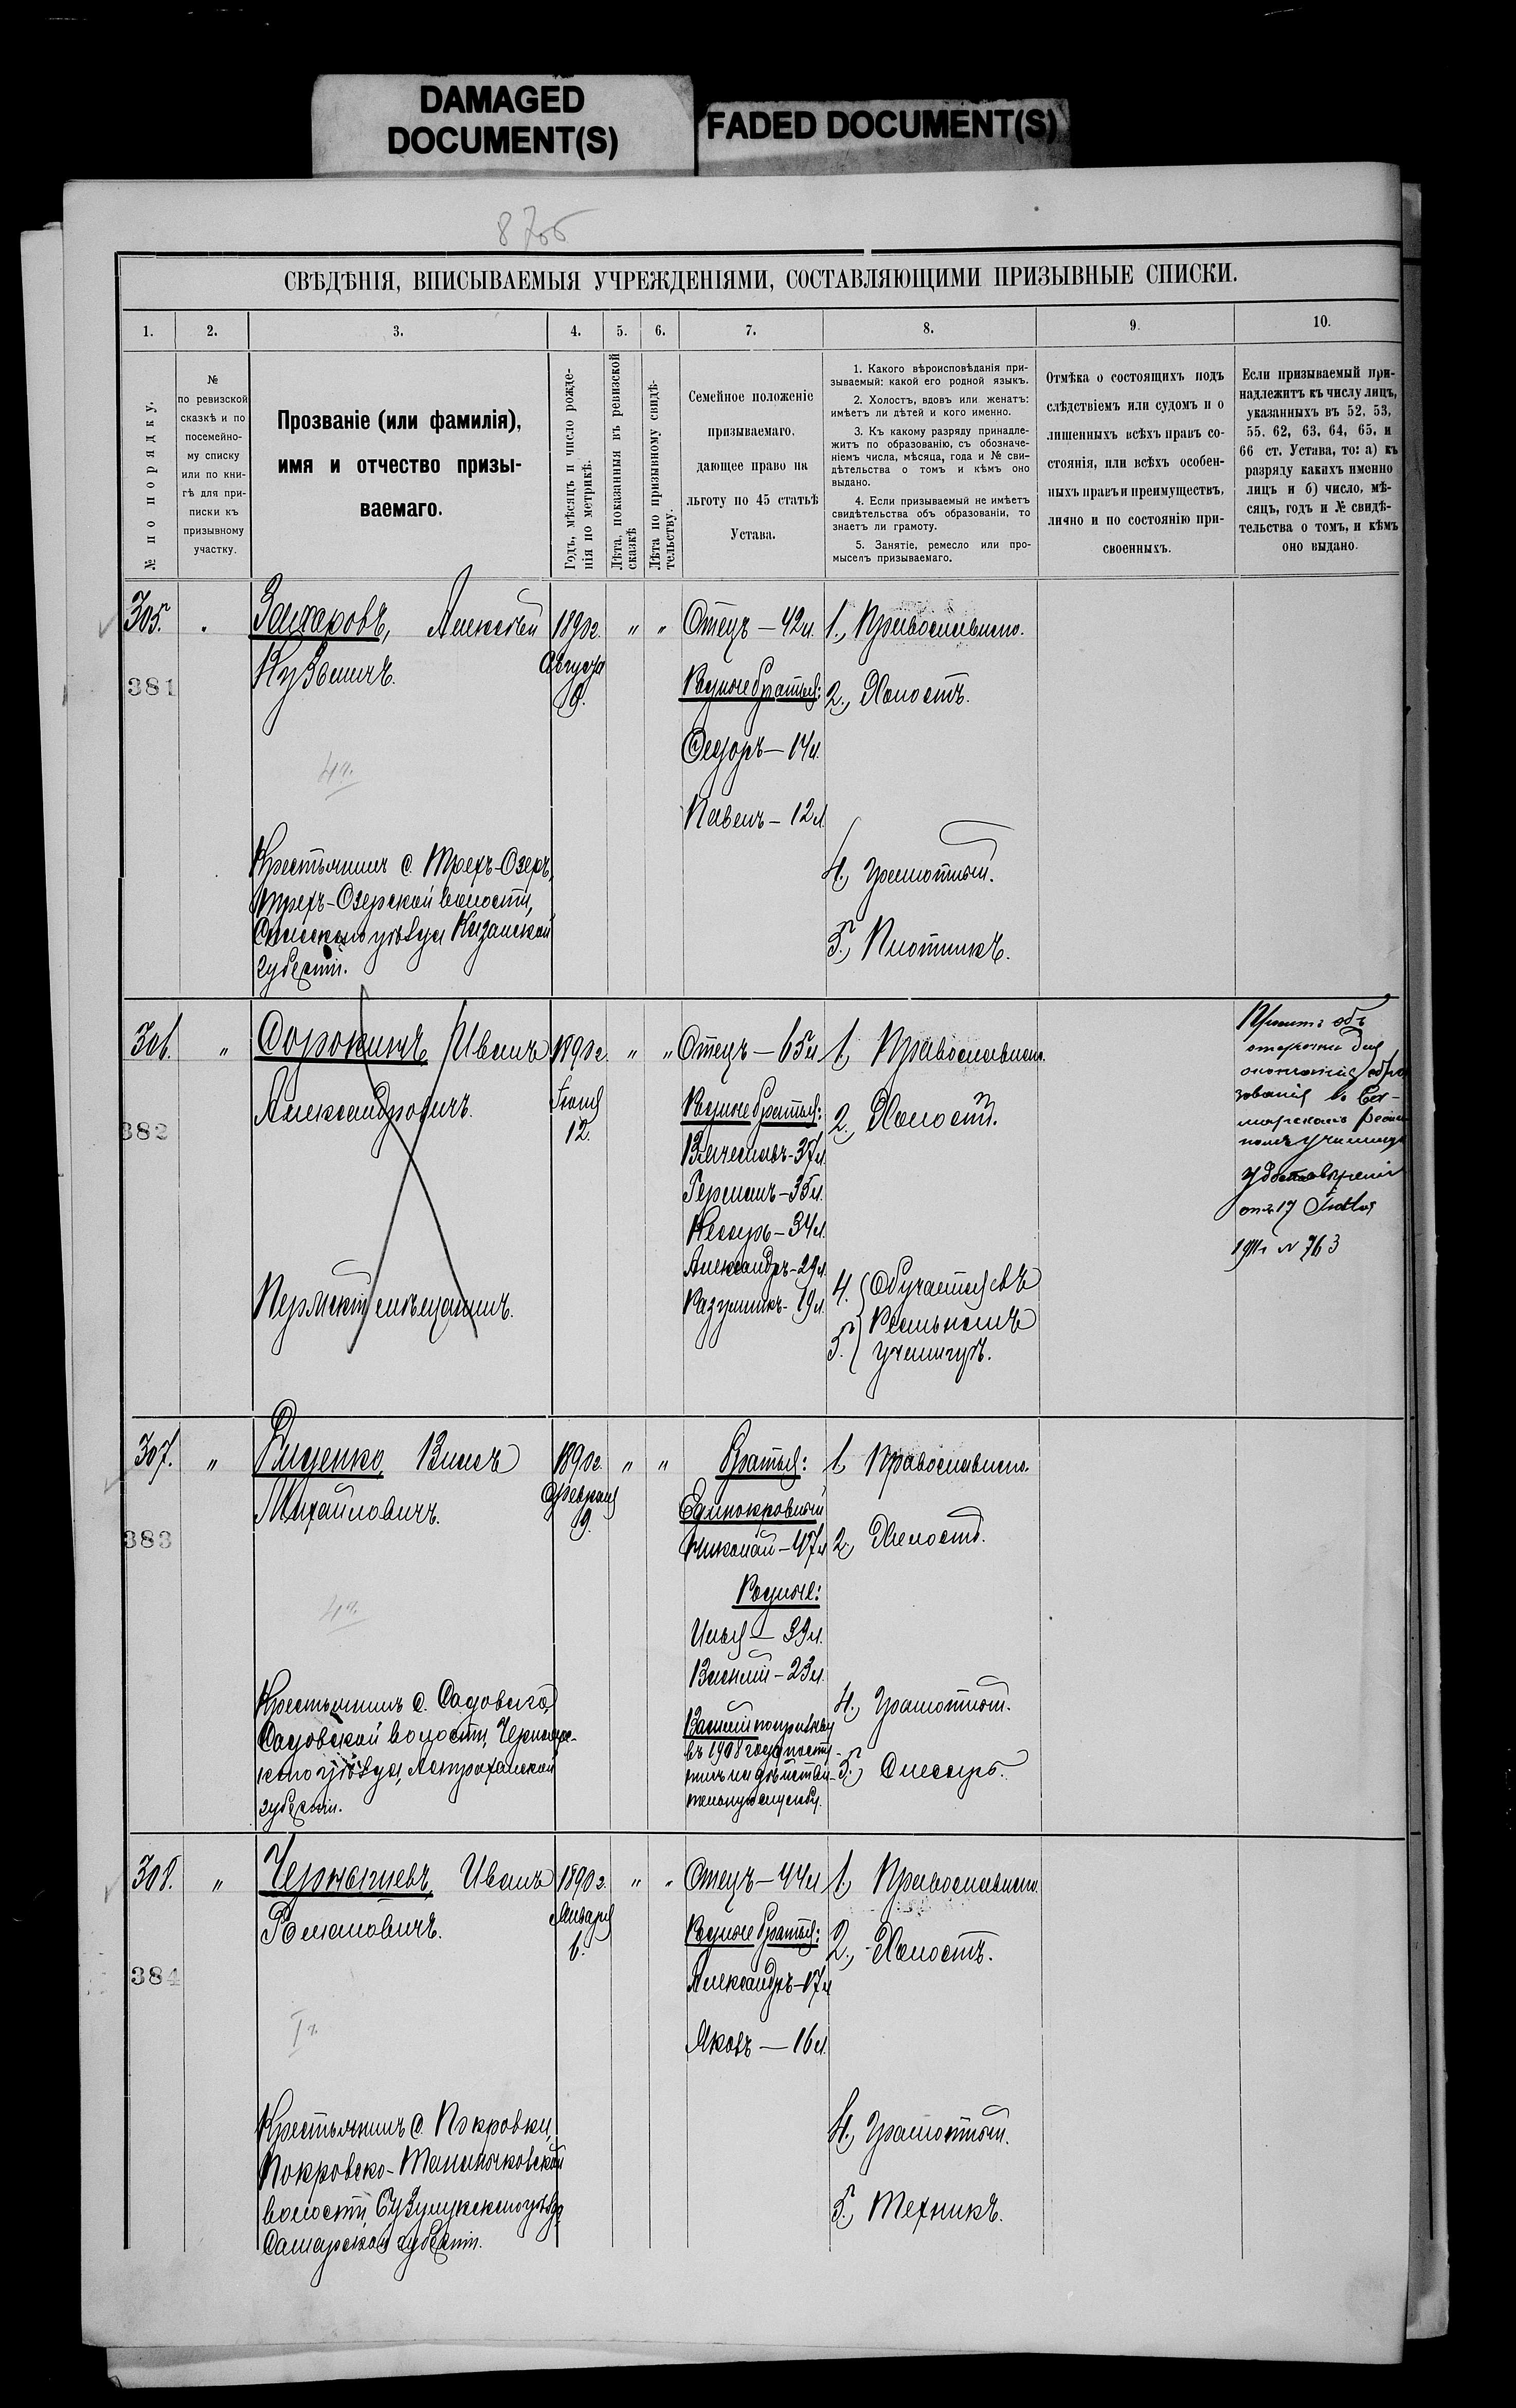 DAMAGED
DOCUMENT(S)
FADED DOCUMENT(S)
СВѢДѢНІЯ, ВПИСЫВАЕМЫЯ УЧРЕЖДЕНІЯМИ, СОСТАВЛЯЮЩИМИ ПРИЗЫВНЫЕ СПИСКИ.
1.
2.
3.
4.
5.
6.
7.
8.
9.
10.
№ по порядку.
№
по ревизской
сказкѣ и по
посемейно-
му списку
или по кни-
гѣ для при-
писки къ
призывному
участку.
Прозваніе (или фамилія),
имя и отчество призы-
ваемаго.
Годъ, мѣсяцъ и число рожде-
нія по метрикѣ.
Лѣта, показанныя въ ревизской
сказкѣ
Лѣта по призывному свидѣ-
тельству.
Семейное положеніе
призываемаго,
дающее право на
льготу по 45 статьѣ
Устава.
1. Какого вѣроисповѣданія при-
зываемый: какой его родной языкъ.
2. Холостъ, вдовъ или женатъ:
имѣетъ ли дѣтей и кого именно.
3. Къ какому разряду принадле-
житъ по образованію, съ обозначе-
ніемъ числа, мѣсяца, года и № сви-
дѣтельства о томъ и кѣмъ оно
выдано.
4. Если призываемый не имѣетъ
свидѣтельства объ образованіи, то
знаетъ ли грамоту.
5. Занятіе, ремесло или про-
мыселъ призываемаго.
Отмѣка о состоящихъ подъ
слѣдствіемъ или судомъ и о
лишенныхъ всѣхъ правъ со-
стоянія, или всѣхъ особен-
ныхъ правъ и преимуществъ,
лично и по состоянію при-
своенныхъ.
Если призываемый при-
надлежитъ къ числу лицъ,
указанныхъ въ 52, 53,
55, 62, 63, 64, 65, и
66 ст. Устава, то: а) къ
разряду какихъ именно
лицъ и б) число, мѣ-
сяцъ, годъ и № свидѣ-
тельства о томъ, и кѣмъ
оно выдано.
305.
381
Захаровъ, Алексѣй
Кузьмичъ.
4 ч.
Крестьянинъ с. Трехъ-Озеръ,
Трехъ-Озерской волости,
Спасскаго уѣзда Казанской
губерніи.
1890 г.
Августа
9.
" "
Отецъ — 42 л.
Родные братья:
Ѳедоръ — 14 л.
Павелъ — 12 л.
1., Православнаго.
2., Холостъ.
4., Грамотный.
5., Плотникъ.
306. "
382
Сорокинъ Иванъ
Александровичъ.
Пермскій мѣщанинъ.
1890 г.
Іюня
12.
" "
Отецъ — 65 л.
Родные братья:
Вячеславъ - 37 л.
Германъ - 35 л.
Александръ - 29 л.
Разумникъ - 19 л.
1, Православнаго.
2., Холостъ.
4.
5.
Обучается въ
Реальномъ
училищѣ.
отъ 17
№ 763
307. "
383
Михайловичъ.
4 ч.
Крестьянинъ с. Садоваго,
Садовской волости, Черноярс-
каго уѣзда, Астраханской
губерніи.
1890 г.
Февраля
9.
" "
Братья:
Единокровный
Николай - 47 л.
Родные:
Илья — 39 л.
Василій - 23 л.
Василій по призыву
въ 1908 году посту-
пилъ на дѣйстви-
тельную службу.
1, Православнаго.
2, Холостъ.
4., Грамотный.
5., Слесарь.
308. "
384
Иванъ
Романовичъ.
I ч.
Крестьянинъ с. Покровки,
волости, Бузулукскаго уѣзда
Самарской губерніи.
1890 г.
Января
6.
" "
Отецъ — 44 л.
Родные братья:
Александръ - 17 л.
Яковъ — 16 л.
1, Православнаго.
2., Холостъ.
4., Грамотный.
5., Техникъ.